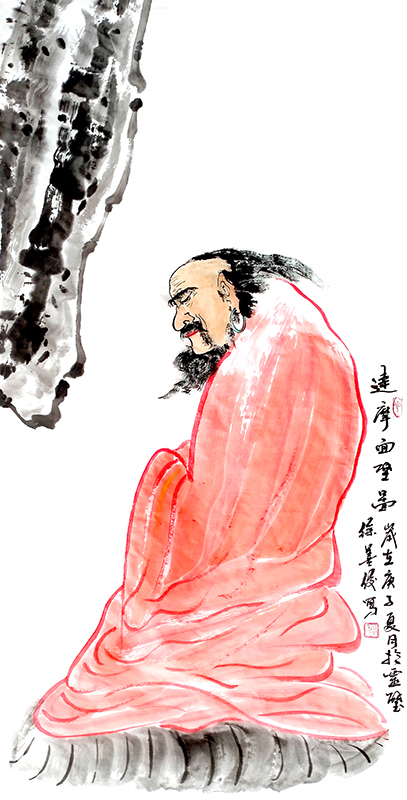 達摩面壁图
歲在庚子夏月於靈璧
徐善俊寫